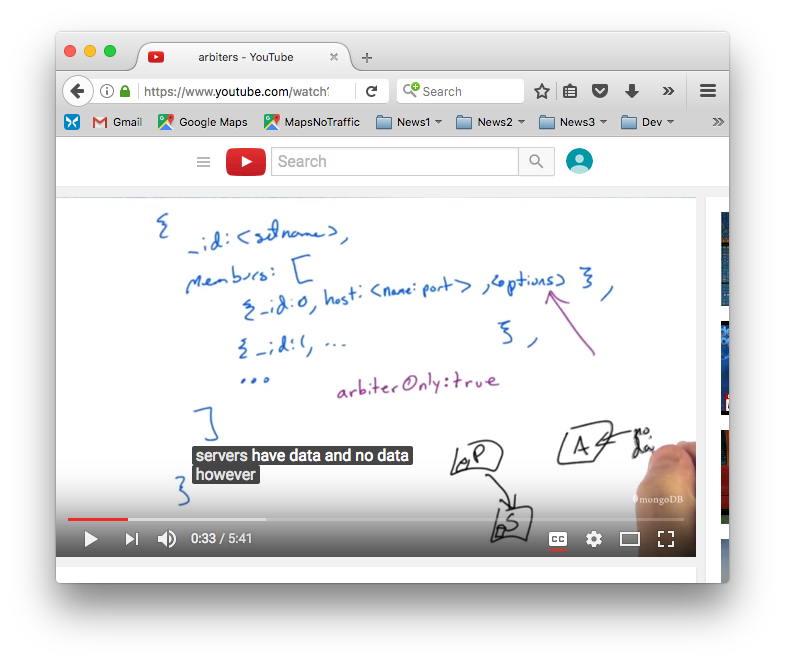 arbiters - YouTube
https://www.youtube.com/watch?
Search
Gmail
Google Maps
MapsNoTraffic
News1
News2
News3
Dev
Search
{
_id: <setname>,
members: [
{_id:0, host: <name:port> , <options> } ,
{_id:1, ... } ,
...
arbiterOnly:true
]
servers have data and no data
however
}
P
S
A
no
mongoDB
0:33 / 5:41
CC